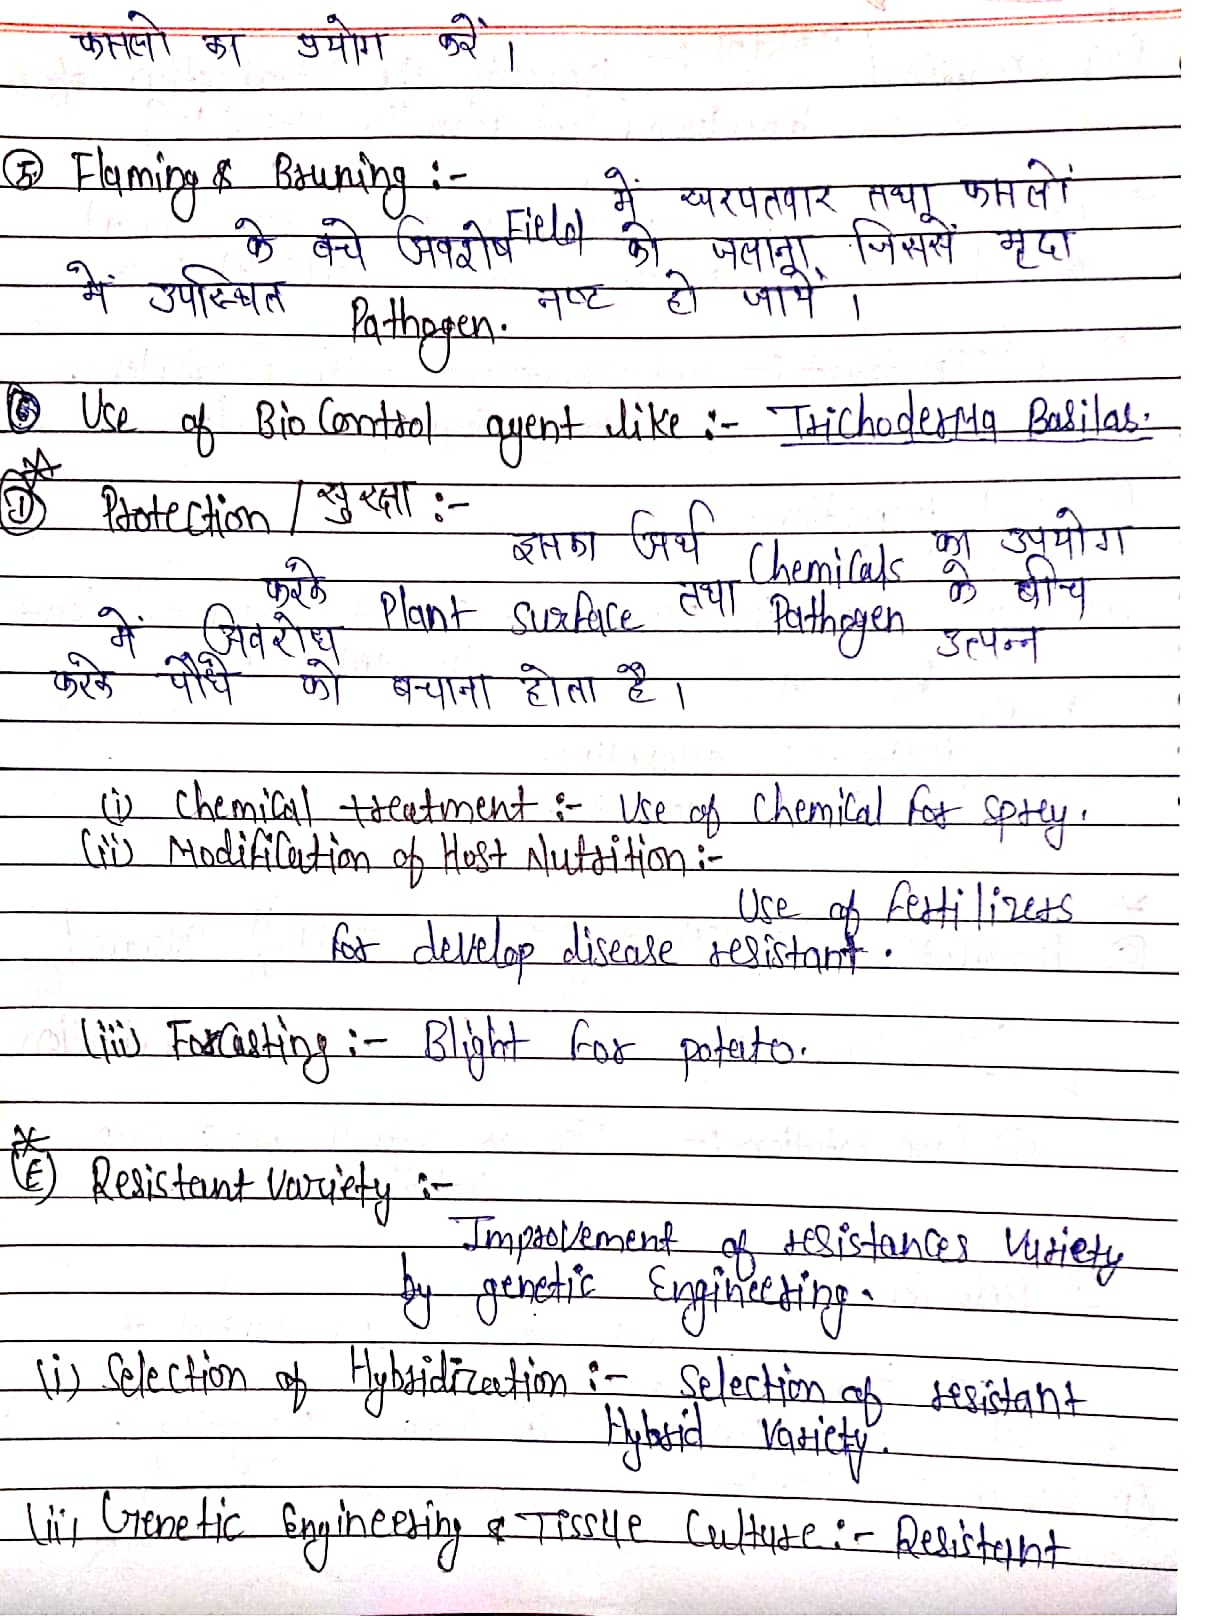 फसलो का प्रयोग करें ।
⑤ Flaming & Bruning :-
Field में खरपतवार तथा फसलों
के बचे अवशेष को जलाना, जिससें मृदा
में उपस्थित Pathogen. नष्ट हो जाये ।
⑥ Use of Bio Control agent like :- Trichoderma Basilas.
Ⓓ Protection / सुरक्षा :-
इसका अर्थ Chemicals का उपयोग
करके Plant surface तथा Pathogen के बीच
में अवरोध उत्पन्न
करके पौधे को बचाना होता है ।
(i) Chemical treatment :- Use of Chemical for sprey.
(ii) Modification of Host Nutrition :-
Use of fertilizers
for develop disease resistant .
(iii) Forcasting :- Blight for potato.
(E) Resistant Variety :-
Improvement of resistances Variety
by genetic Engineering.
(i) Selection of Hybridization :- Selection of resistant
Hybrid Variety.
(ii) Genetic Engineering & Tissue Culture :- Resistant